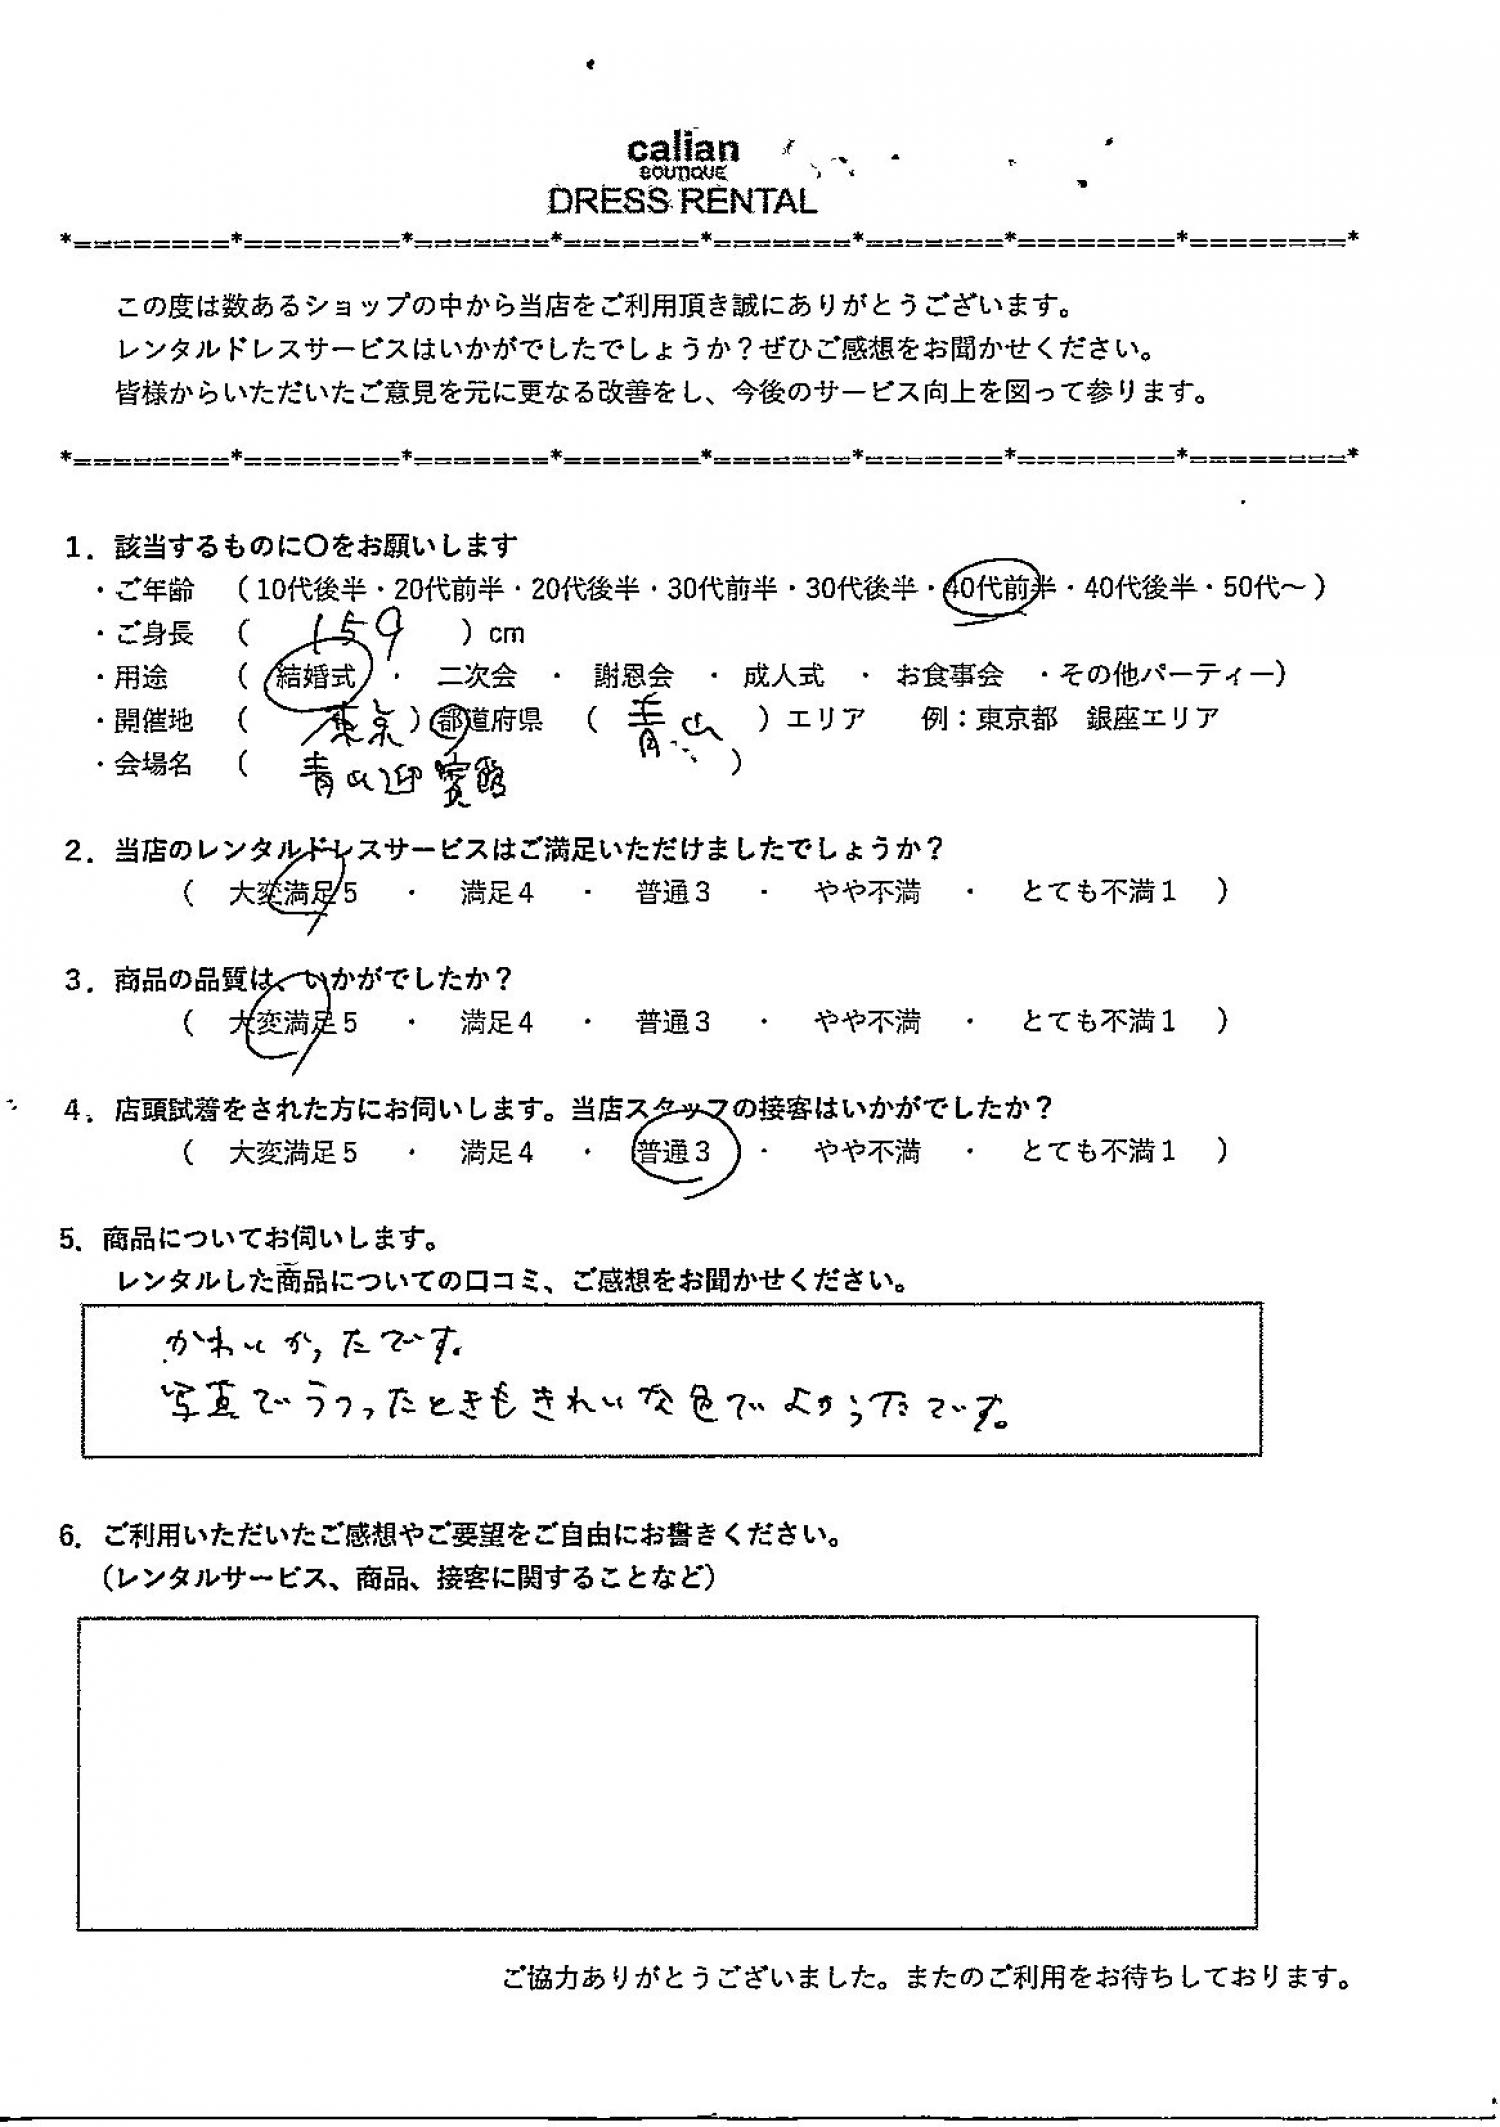 calian
BOUTIQUE
DRESS RENTAL
*========*========*=======*=======*=======*=======*========*========*
この度は数あるショップの中から当店をご利用頂き誠にありがとうございます。
レンタルドレスサービスはいかがでしたでしょうか？ぜひご感想をお聞かせください。
皆様からいただいたご意見を元に更なる改善をし、今後のサービス向上を図って参ります。
*========*========*=======*=======*=======*=======*========*========*
1．該当するものに〇をお願いします
・ご年齢 （10代後半・20代前半・20代後半・30代前半・30代後半・40代前半・40代後半・50代～）
・ご身長 （ 159 ）cm
・用途 （ 結婚式 ・ 二次会 ・ 謝恩会 ・ 成人式 ・ お食事会 ・その他パーティー）
・開催地 （ 東京 ）都道府県 （ 青山 ）エリア 例：東京都 銀座エリア
・会場名 （ 青山迎賓館 ）
2．当店のレンタルドレスサービスはご満足いただけましたでしょうか？
（ 大変満足５ ・ 満足４ ・ 普通３ ・ やや不満 ・ とても不満１ ）
3．商品の品質は、いかがでしたか？
（ 大変満足５ ・ 満足４ ・ 普通３ ・ やや不満 ・ とても不満１ ）
4．店頭試着をされた方にお伺いします。当店スタッフの接客はいかがでしたか？
（ 大変満足５ ・ 満足４ ・ 普通３ ・ やや不満 ・ とても不満１ ）
5．商品についてお伺いします。
レンタルした商品についての口コミ、ご感想をお聞かせください。
かわいかったです。
写真でうつったときもきれいな色でよかったです。
6．ご利用いただいたご感想やご要望をご自由にお書きください。
（レンタルサービス、商品、接客に関することなど）
ご協力ありがとうございました。またのご利用をお待ちしております。